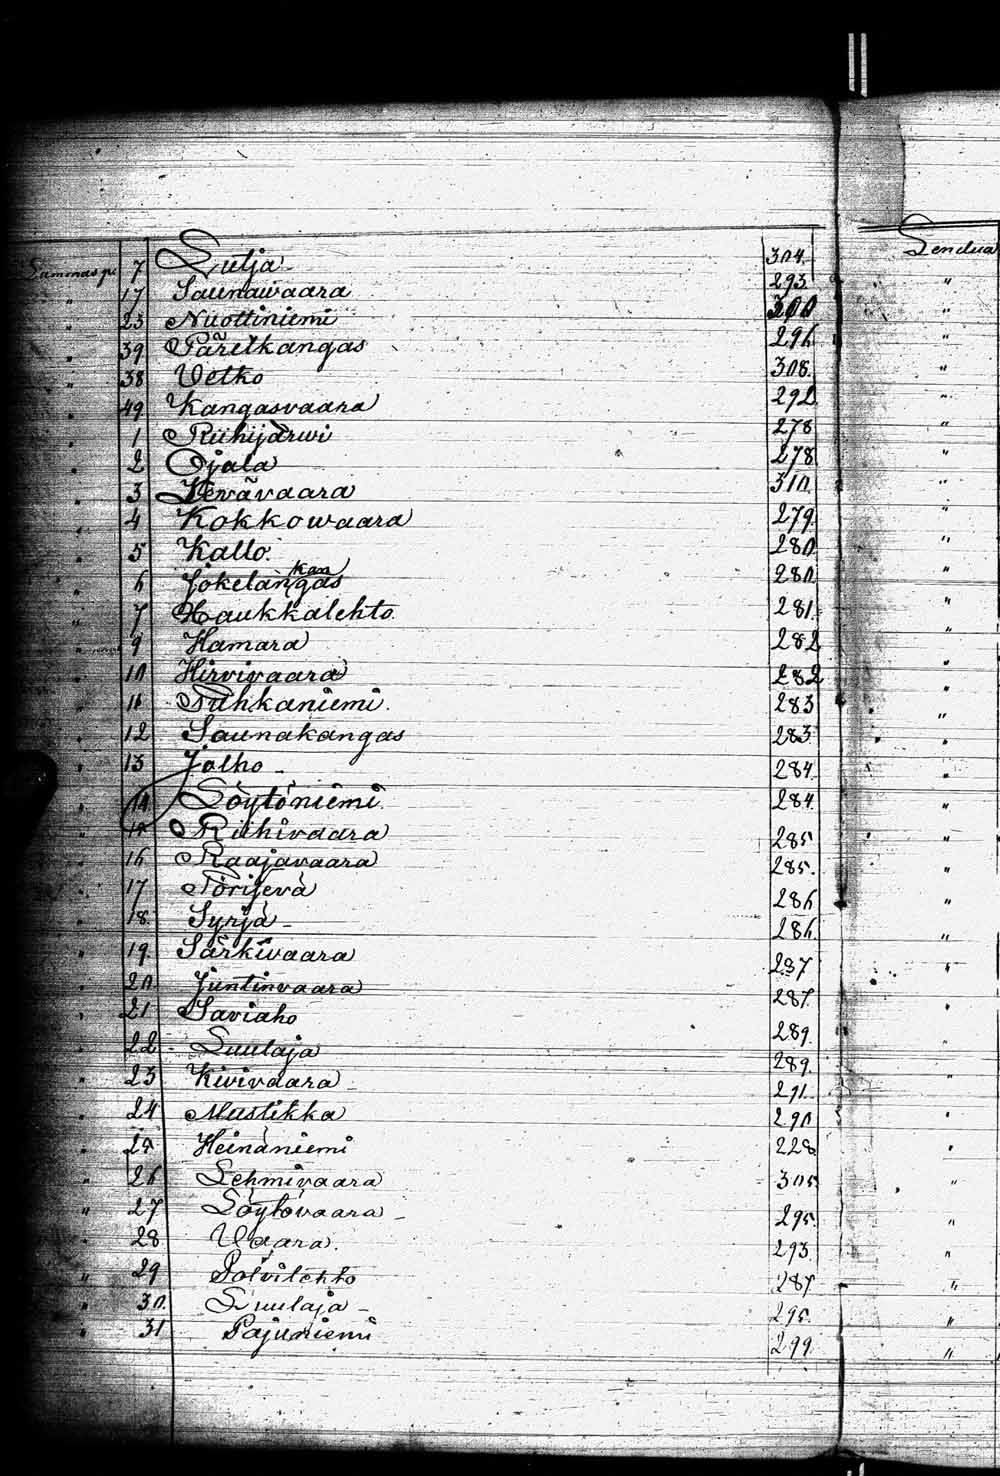 7 Lutja 304.
" 17 Saunawaara 293.
" 23 Nuottiniemi 300
" 39 Päretkangas 296
" 38 Vetko 308.
" 49 Kangasvaara 292
" 1 Riihijärwi 278
" 2 Ojala 278
" 3 Kevävaara 310.
" 4 Kokkowaara 279.
" 5 Kallo. 280
" 6 Jokelankangas 280
" 7 Haukkalehto. 281.
" 9 Hamara 282
" 10 Hirvivaara 282
" 11 Tuhkaniemi. 283
" 12 Saunakangas 283.
" 13 Jolho - 284.
" 14 Löytöniemi. 284.
" 15 Riihivaara 285
" 16 Raajavaara 285.
" 17 286
" 18. Syrjä - 286.
" 19. Särkivaara 287
" 20. Juntinvaara 287.
" 21 Saviaho 289.
" 22 - Luulaja 289.
" 23 Kivivaara 291.
" 24 Mustikka 290
" 25 Heinäniemi 228
" 26 Lehmivaara 305
" 27 Löytövaara - 295.
" 28 Vaara. 293.
" 29 Polvilehto 287
" 30. Luulaja - 295.
" 31 Pajuniemi 299.
Lendua